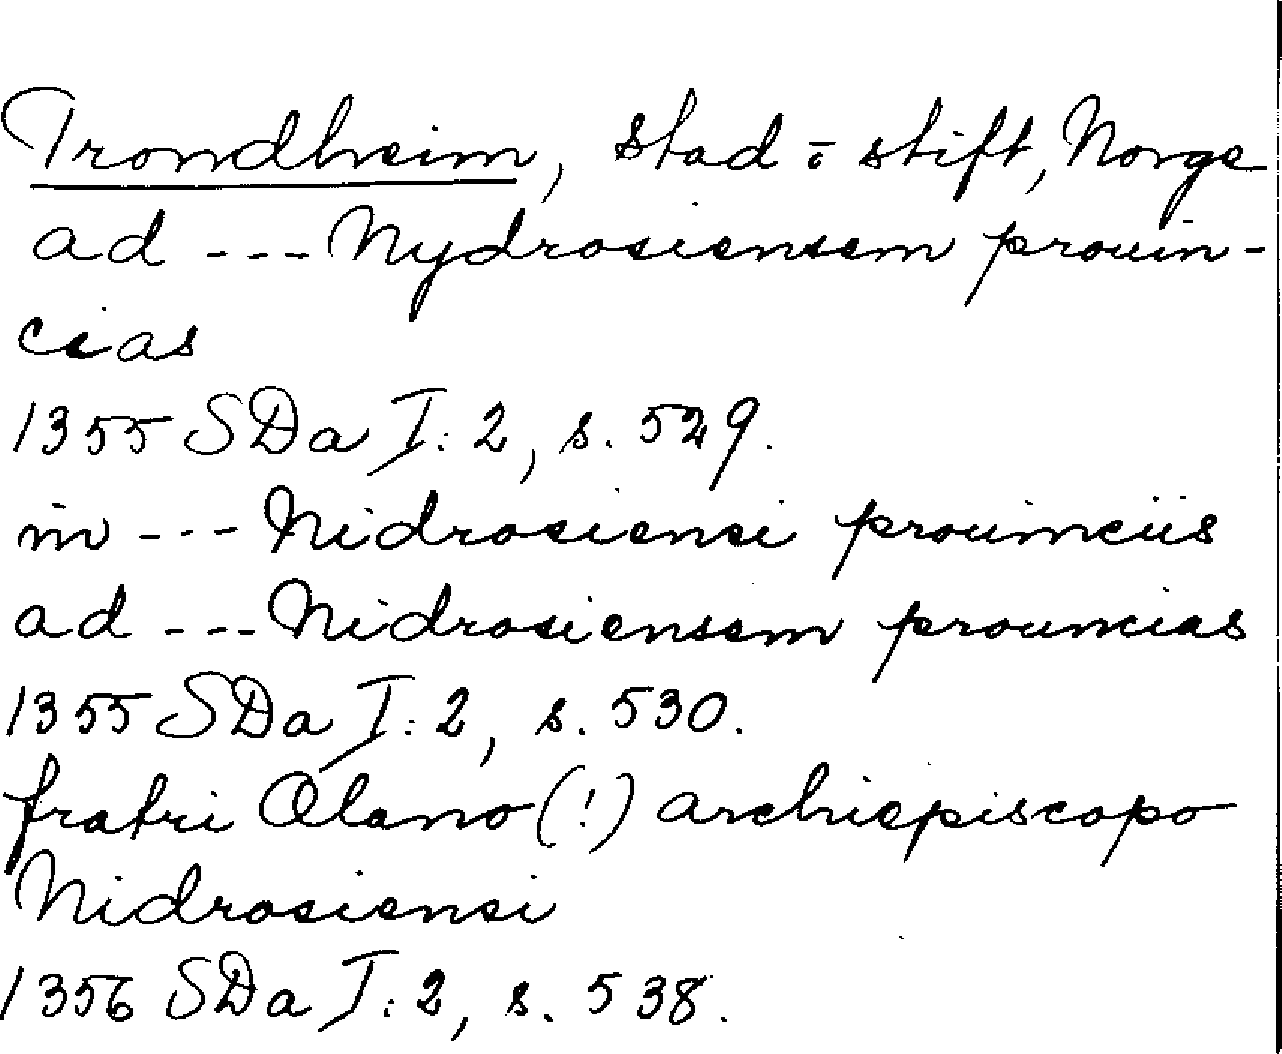 Trondheim, stad o stift, Norge
ad --- Nydrosiensem prouin-
cias
1355 SDa I:2, s. 529.
in --- Nidrosiensi prouinciis
ad --- Nidrosiensem prouincias
1355 SDa I:2, s. 530.
fratri Olano (!) archiepiscopo
Nidrosiensi
1356 SDa I:2, s. 538.